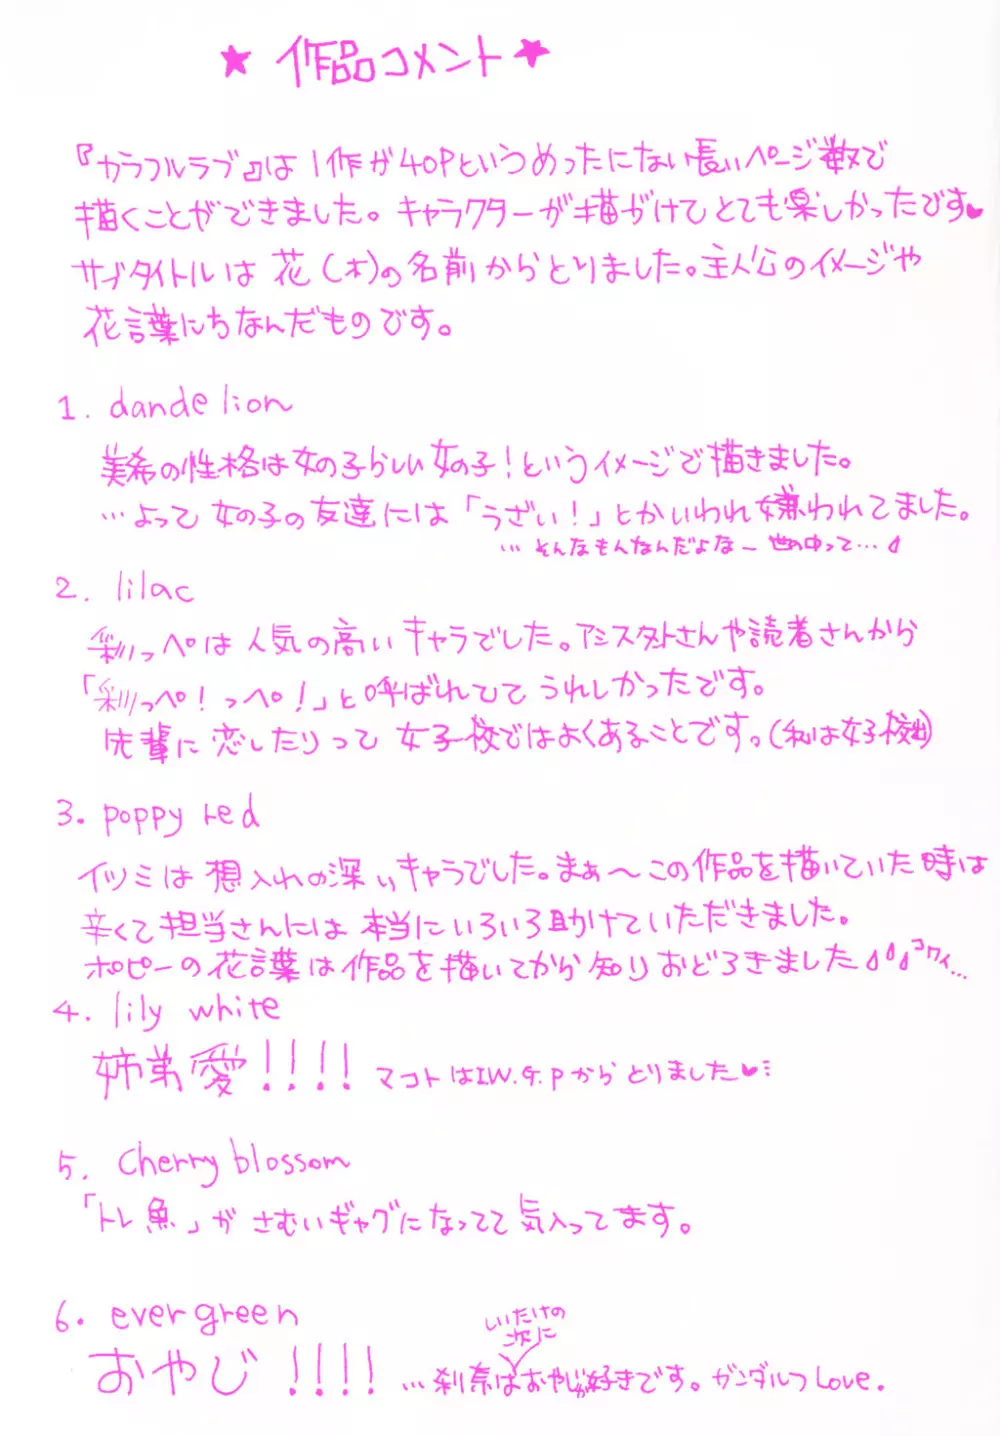 ★ 作品コメント ★
『カラフルラブ』は1作が40Pというめったにない長いページ数で
描くことができました。キャラクターが描かけてとても楽しかったです♥
サブタイトルは花(木)の名前からとりました。主人公のイメージや
花言葉にちなんだものです。
1. dandelion
美希の性格は女の子らしい女の子!というイメージで描きました。
…よって女の子の友達には「うざい!」とかいわれ嫌われてました。
…そんなもんなんだよなー 世の中って…
2. lilac
彩っぺは人気の高いキャラでした。アシスタントさんや読者さんから
「彩っぺ!っぺ!」と呼ばれてて うれしかったです。
先輩に恋したりって 女子校ではよくあることです。(私は女子校出)
3. poppy red
イツミは想入れの深いキャラでした。まぁ〜この作品を描いていた時は
辛くて担当さんには本当にいろいろ助けていただきました。
ポピーの花言葉は作品を描いてから知りおどろきました コワイ…
4. lily white
姉弟愛!!!! マコトはI.W.G.Pからとりました♥
5. Cherry blossom
「トレ魚」がさむいギャグになってて気入ってます。
6. evergreen
いたけの
次に
おやじ!!!! …刹奈はおやじが好きです。ガンダルフLove.